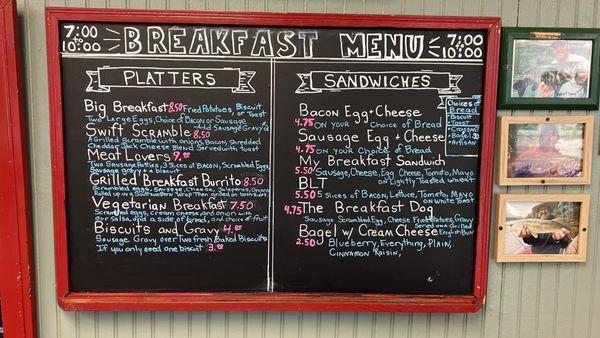 7:00 to 10:00
BREAKFAST MENU
7:00 to 10:00
PLATTERS
Big Breakfast 8.50 Fried Potatoes, Biscuit or Toast
Two Large Eggs, Choice of Bacon or Sausage
Add Sausage Gravy 2
Swift Scramble 8.50
A Grilled Scramble with onions, Bacon, Shredded
Cheddar Jack Cheese Blend Served with toast
Meat Lovers 9.00
Two Sausage Patties, 3 Slices of Bacon, Scrambled Eggs,
Sausage gravy + a biscuit
Grilled Breakfast Burrito 8.50
Scrambled eggs, Sausage, Cheese, Jalepenos, Onions
Rolled up in a Southwest Wrap then grilled
Vegetarian Breakfast 7.50
Scrambled eggs, cream cheese and onion with
our Salsa, and a side of bread, and choice of fruit
Biscuits and Gravy 4.00
Sausage Gravy over Two Fresh Baked Biscuits
If you only seed one biscuit 3.00
SANDWICHES
Bacon Egg + Cheese
4.75 on your Choice of Bread
Sausage Egg + Cheese
4.75 on your Choice of Bread
My Breakfast Sandwich
5.50 Sausage, Cheese, Egg, Tomato, Mayo
on Lightly Toasted wheat
BLT
5.50 5 Slices of Bacon, Lettuce, Tomato, Mayo
on White Toast
4.75 The Breakfast Dog
Sausage Scrambled Egg, Cheese, Fried Potatoes, Gravy
Served on a Grilled English Bun
Bagel w/ Cream Cheese
2.50 Blueberry, Everything, Plain,
Cinnamon Raisin,
Choices of
Bread
• Biscuit
• Toast
• Croissant
• Bagel .50
• Artisan